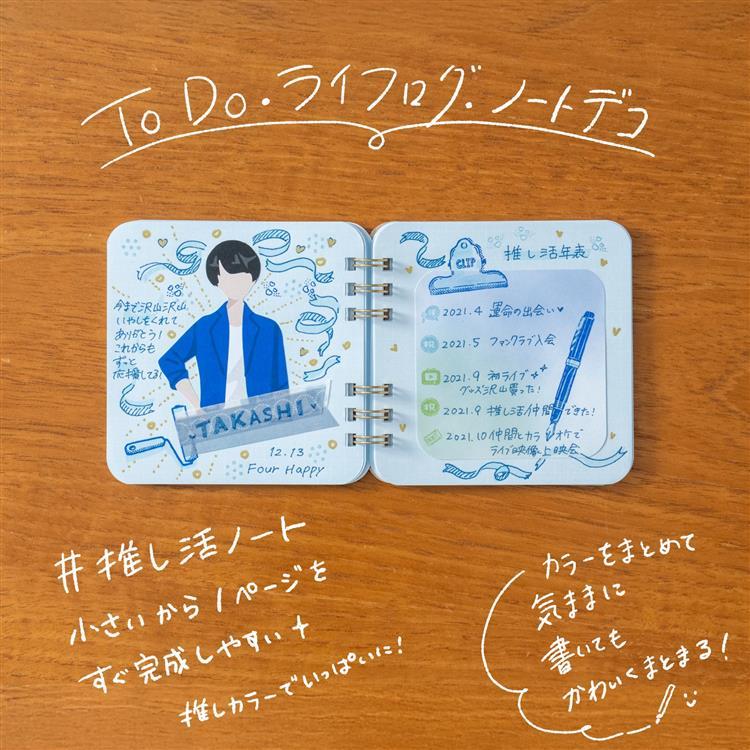 ToDo・ライフログ・ノートデコ
今まで沢山沢山
いやしをくれて
ありがとう!
これからも
ずっと
応援してる!
TAKASHI
12.13
Four Happy
CLIP
推し活年表
2021.4 運命の出会い♥
2021.5 ファンクラブ入会
2021.9 初ライブ
グッズ沢山買った!
祝 2021.9 推し活仲間できた!
2021.10 仲間とカラオケで
ライブ映像上映会
#推し活ノート
小さいから1ページを
すぐ完成しやすい+
推しカラーでいっぱいに!
カラーをまとめて
気ままに
書いても
かわいくまとまる!